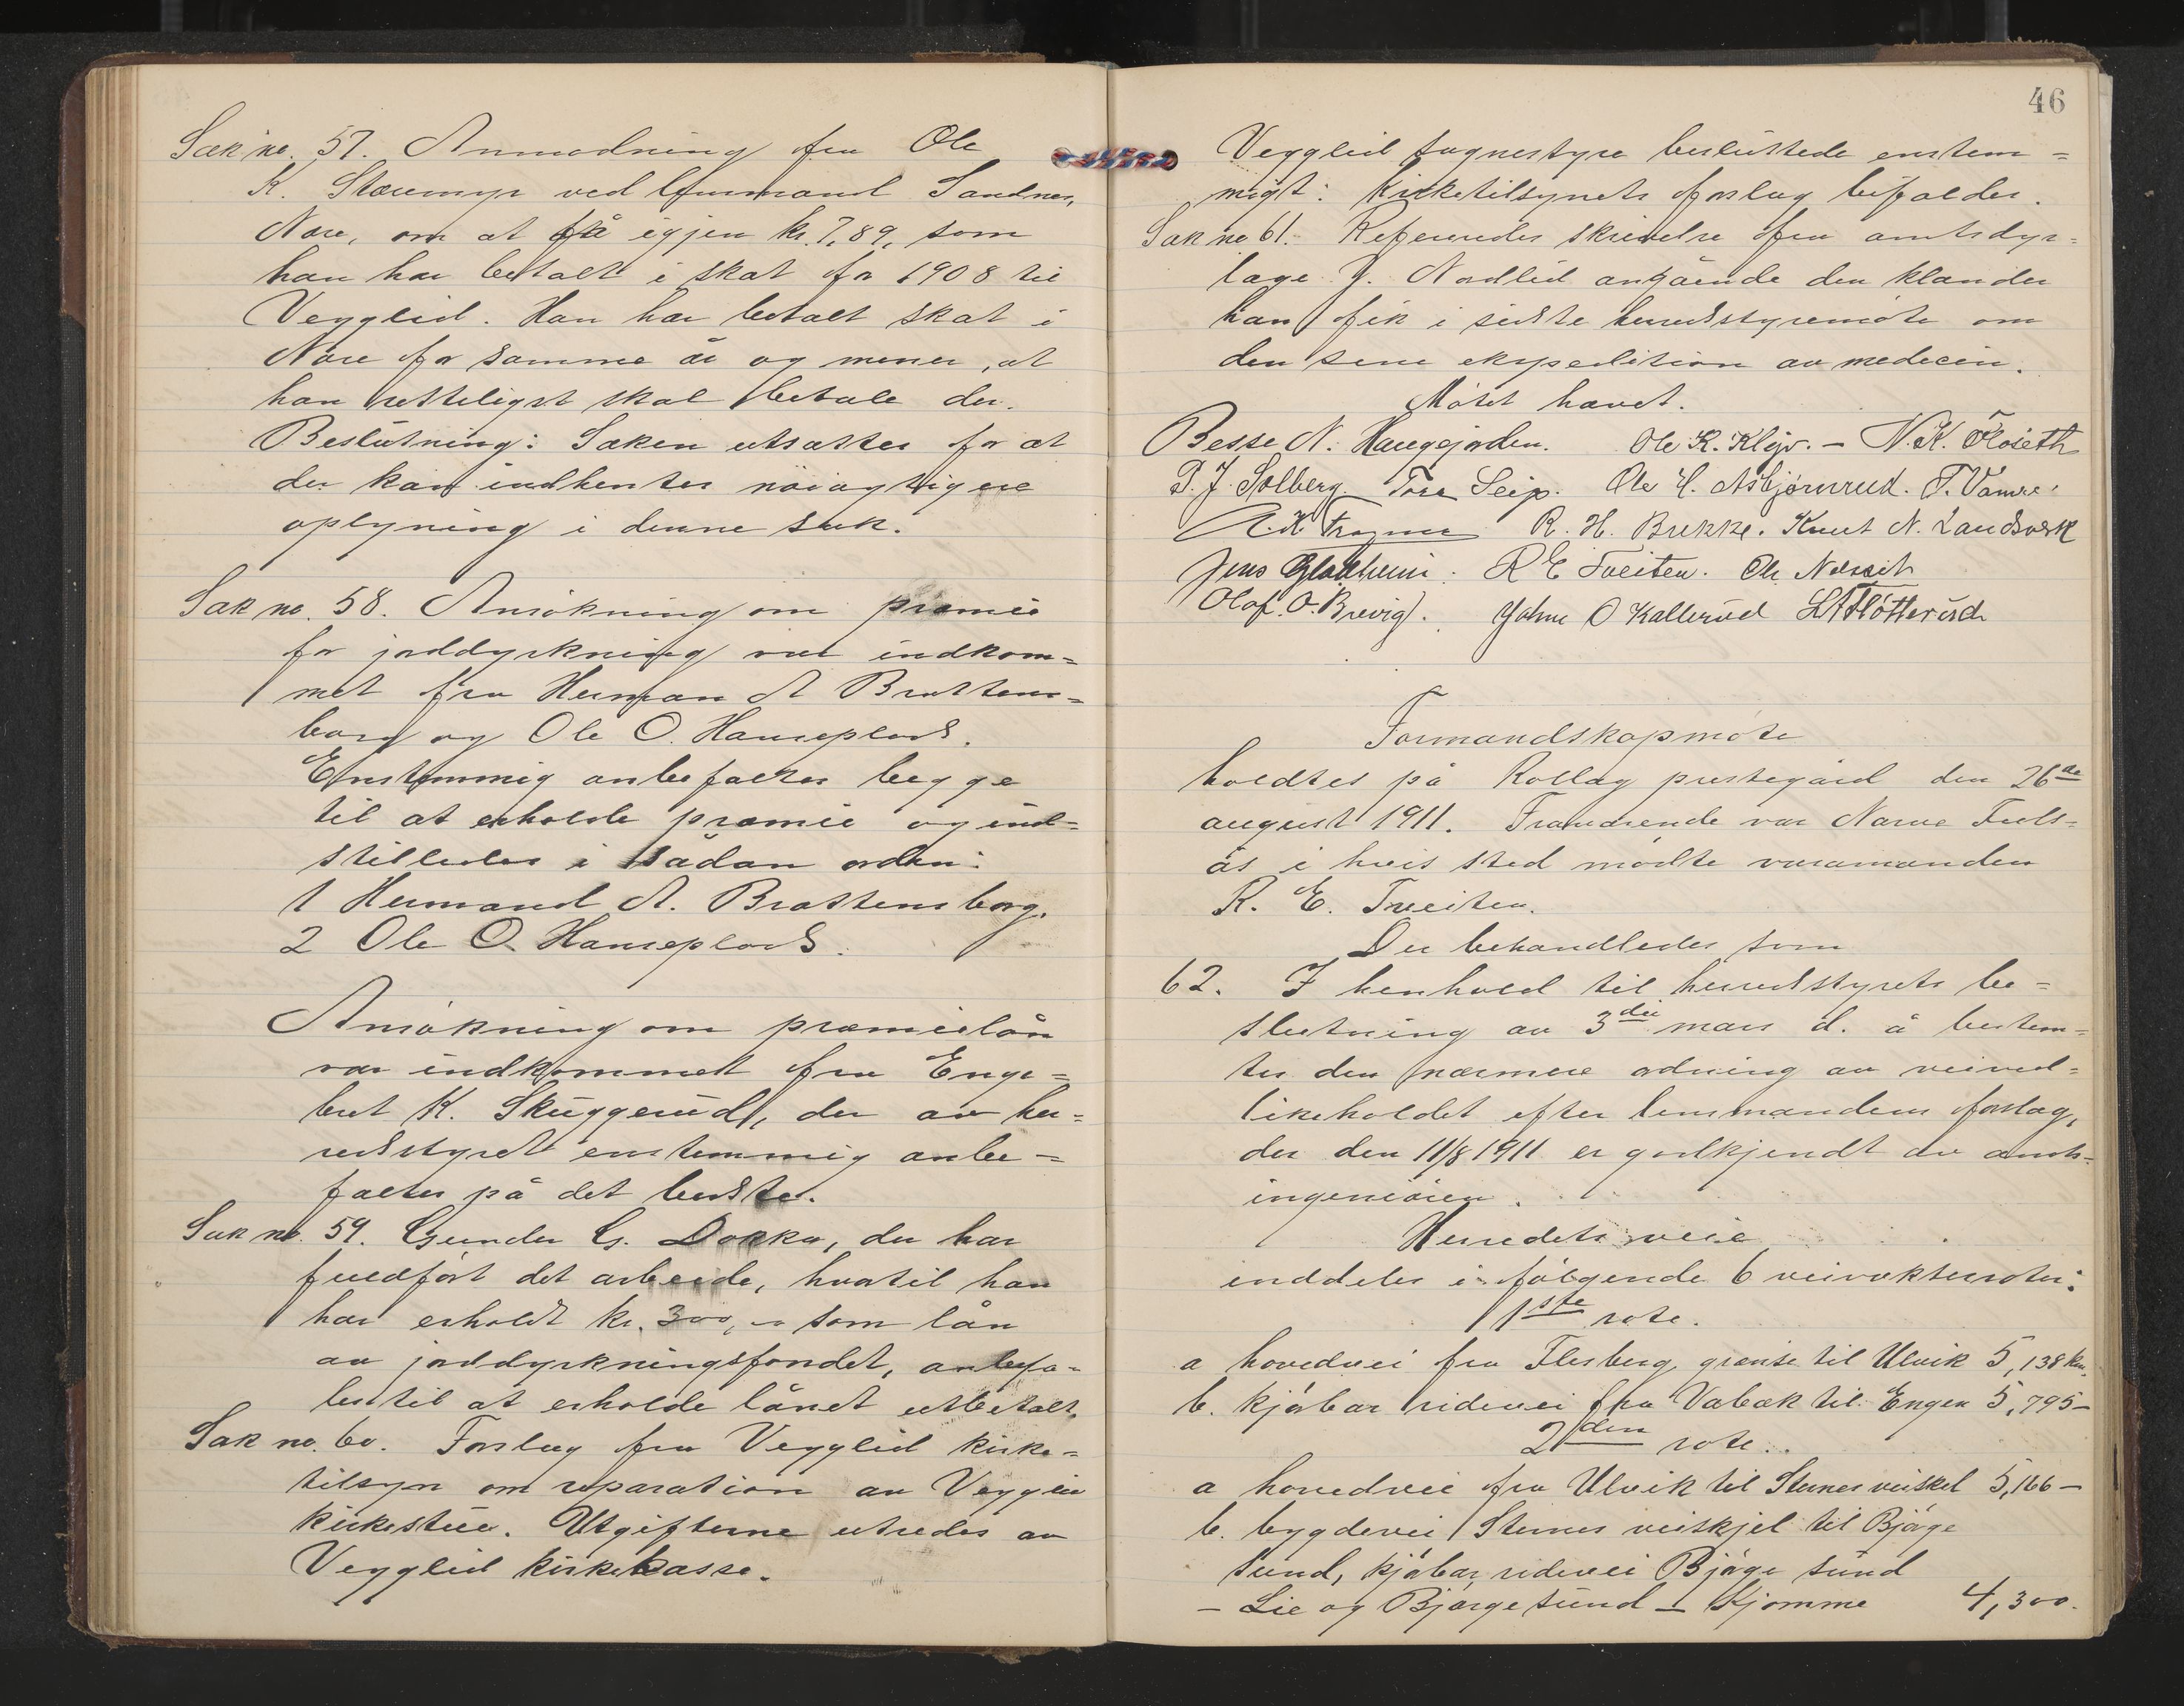 Sak no. 57. Anmodning fra Ole
K. Storemyr ved lensmand Sandnes,
Nore, om at få igjen kr. 7,89, som
han har betalt i skat for 1908 til
Vegglid. Han har betalt skat i
Nore for samme år og mener, at
han retteligst skal betale der.
Beslutning: Saken utsættes for at
der kan indhentes nöiagtigere
oplysning i denne sak.
Sak no. 58. Ansökning om præmie
for jorddyrkning var indkom=
met fra Herman A Brattens=
borg og Ole O. Hanseplads.
Enstemmig anbefaltes begge
til at erholde præmie og ind=
stilledes i sådan orden:
1 Hermand A. Brattensborg.
2 Ole O. Hanseplads.
Ansökning om præmielån
var indkommet fra Enge=
bret K. Skuggerud, der av her=
redsstyret enstemmig anbe=
faltes på det bedste.
Sak no. 59. Gunder G. Dokka, der har
fuldfört det arbeide, hvortil han
har erholdt kr. 300,00 som lån
av jorddyrkningsfondet, anbefa=
les til at erholde lånet utbetalt.
Sak no. 60. Forslag fra Vegglid kirke=
tilsyn om reparation av Vegglid
kirkestue. Utgifterne utredes av
Vegglid kirkekasse.
46
Vegglid sognestyre besluttede enstem=
migt: Kirketilsynets forslag bifaldes.
Sak no 61. Refereredes skrivelse fra amtsdyr=
læge J. Nordlid angående den klander
han fik i sidste herredsstyremöte om
den sene ekspedition av medecin.
Mötet hævet.
Besse N. Haugejorden. Ole K. Kleiv. – N. K. Floseth
P. J. Solberg. Tore Seip. Ole H. Asbjørnrud. T. Vamre.
R. H. Brekke. Knut N. Landsverk
Jens Gladheim. R E Tveiten. Ole
Olaf. O. Brevig. John O Kallerud
Formandskapmöte
holdtes på Rollag prestegård den 26de
august 1911. Fraværende var Narve Fuls=
ås i hvis sted mödte varamanden
R. E. Tveiten.
Der behandledes som
62. I henhold til herredsstyrets be=
slutning av 3die mars d. å bestem=
tes den nærmere ordning av veived=
likeholdet efter lensmandens forslag,
der den 11/8 1911 er godkjendt av amts=
ingeniören.
Herredets veie
inddeles i fölgende 6 veivokterroter:
1ste rote.
a hovedvei fra Flesberg grænse til Ulvik 5,138 km.
b. kjörbar ridevei fra Vabæk til Engen 5,795 –
2den rote.
a hovedvei fra Ulvik til Stenes veiskel 5,166 –
b. bygdevei Stenes veiskjel til Björge
sund, kjörbar ridevei Bjöge sund
– Lie og Björge sund – Kjomme 4,300.